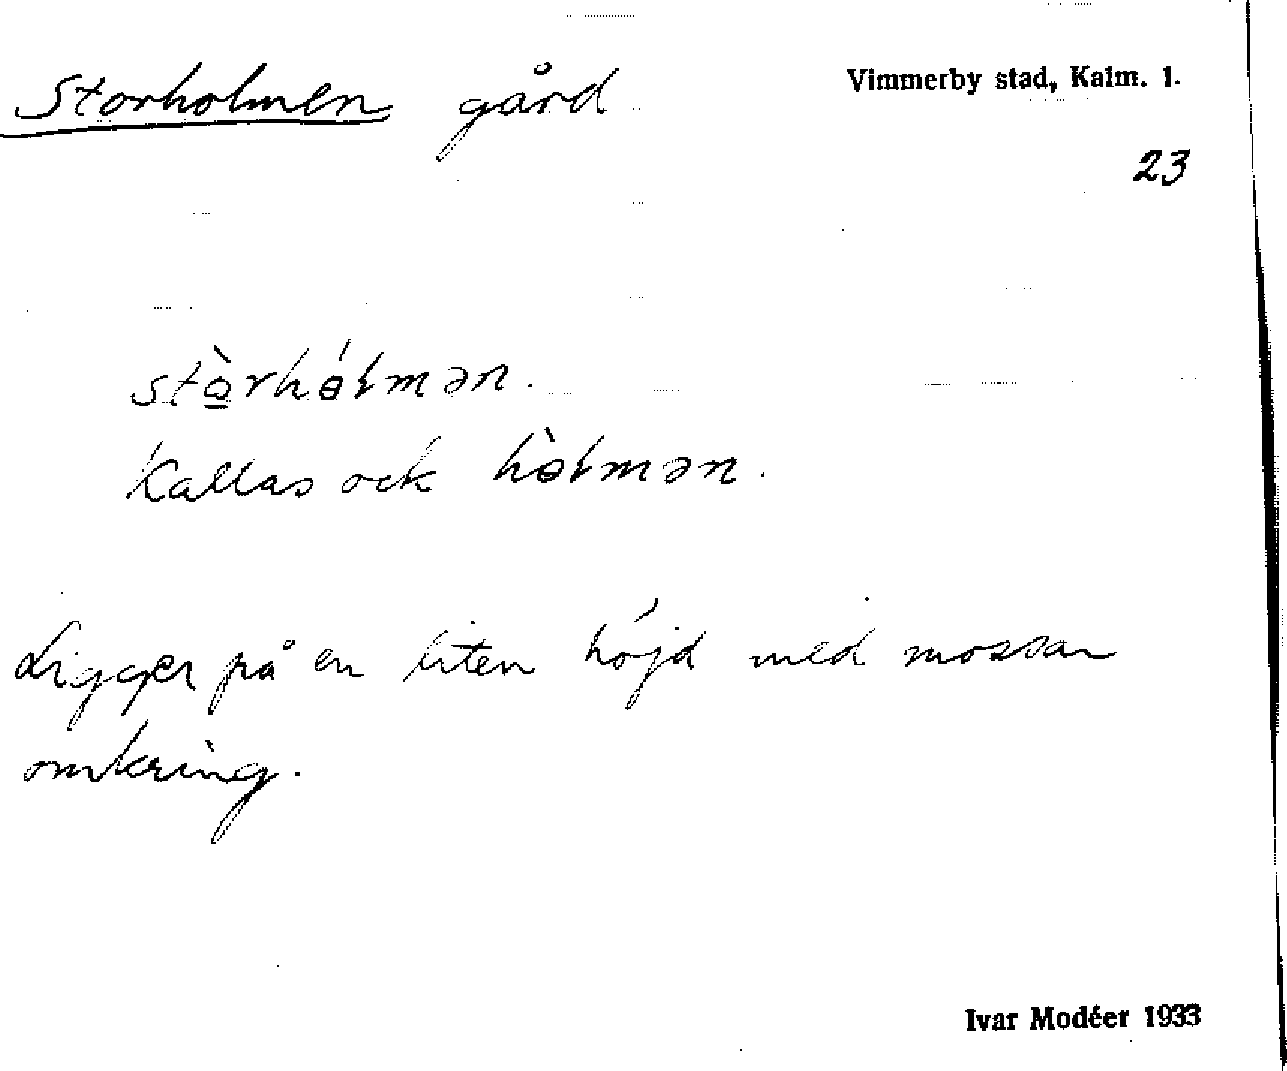 Storholmen gård
Vimmerby stad, Kalm. 1.
23
stò̲rhólmən.
Kallas ock hòlmən.
Ligger på en liten höjd med mossar
omkring.
Ivar Modéer 1933